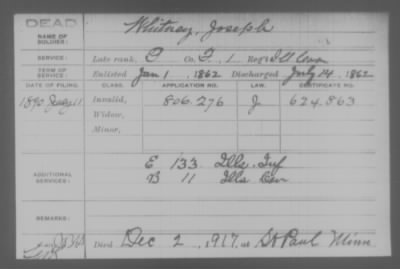 DEAD
NAME OF SOLDIER: Whitney, Joseph
SERVICE: Late rank, C Co. F, 1 Reg't Ill Cav
TERM OF SERVICE: Enlisted Jan 1, 1862 Discharged July 14, 1862
DATE OF FILING. CLASS. APPLICATION NO. LAW. CERTIFICATE NO.
1890 July 11 Invalid, 806.276 J 624.863
Widow,
Minor,
ADDITIONAL SERVICES: E 133 Ills. Inf
B 11 Ills Cav
REMARKS:
Died Dec 2, 1917, at St Paul Minn